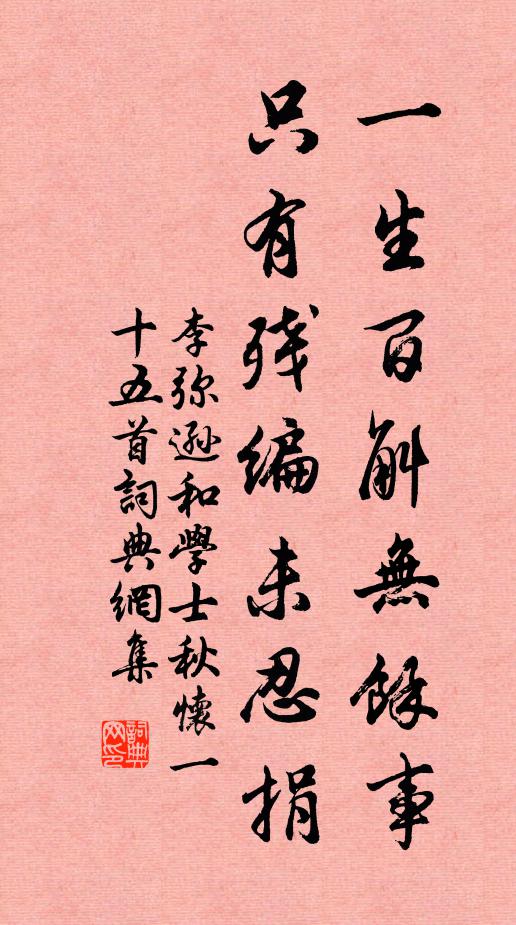 一生百斛無餘事
只有残編未忍捐
李弥遜和學士秋懷一
十五首詞典網集
詞典
网印